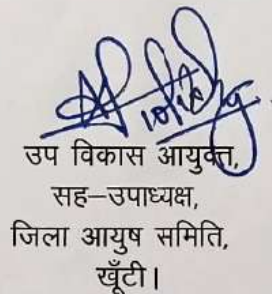 उप विकास आयुक्त,
सह–उपाध्यक्ष,
जिला आयुष समिति,
खूँटी।